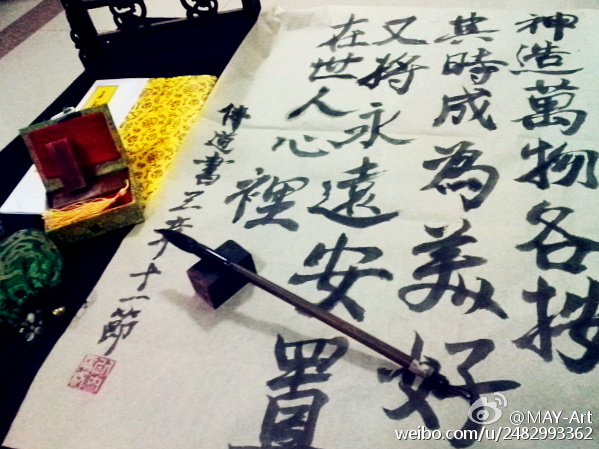 神造萬物各按
其時成為美好
又將永遠安置
在世人心裡
傳道書三章十一節
@MAY-Art
weibo.com/u/2482993362